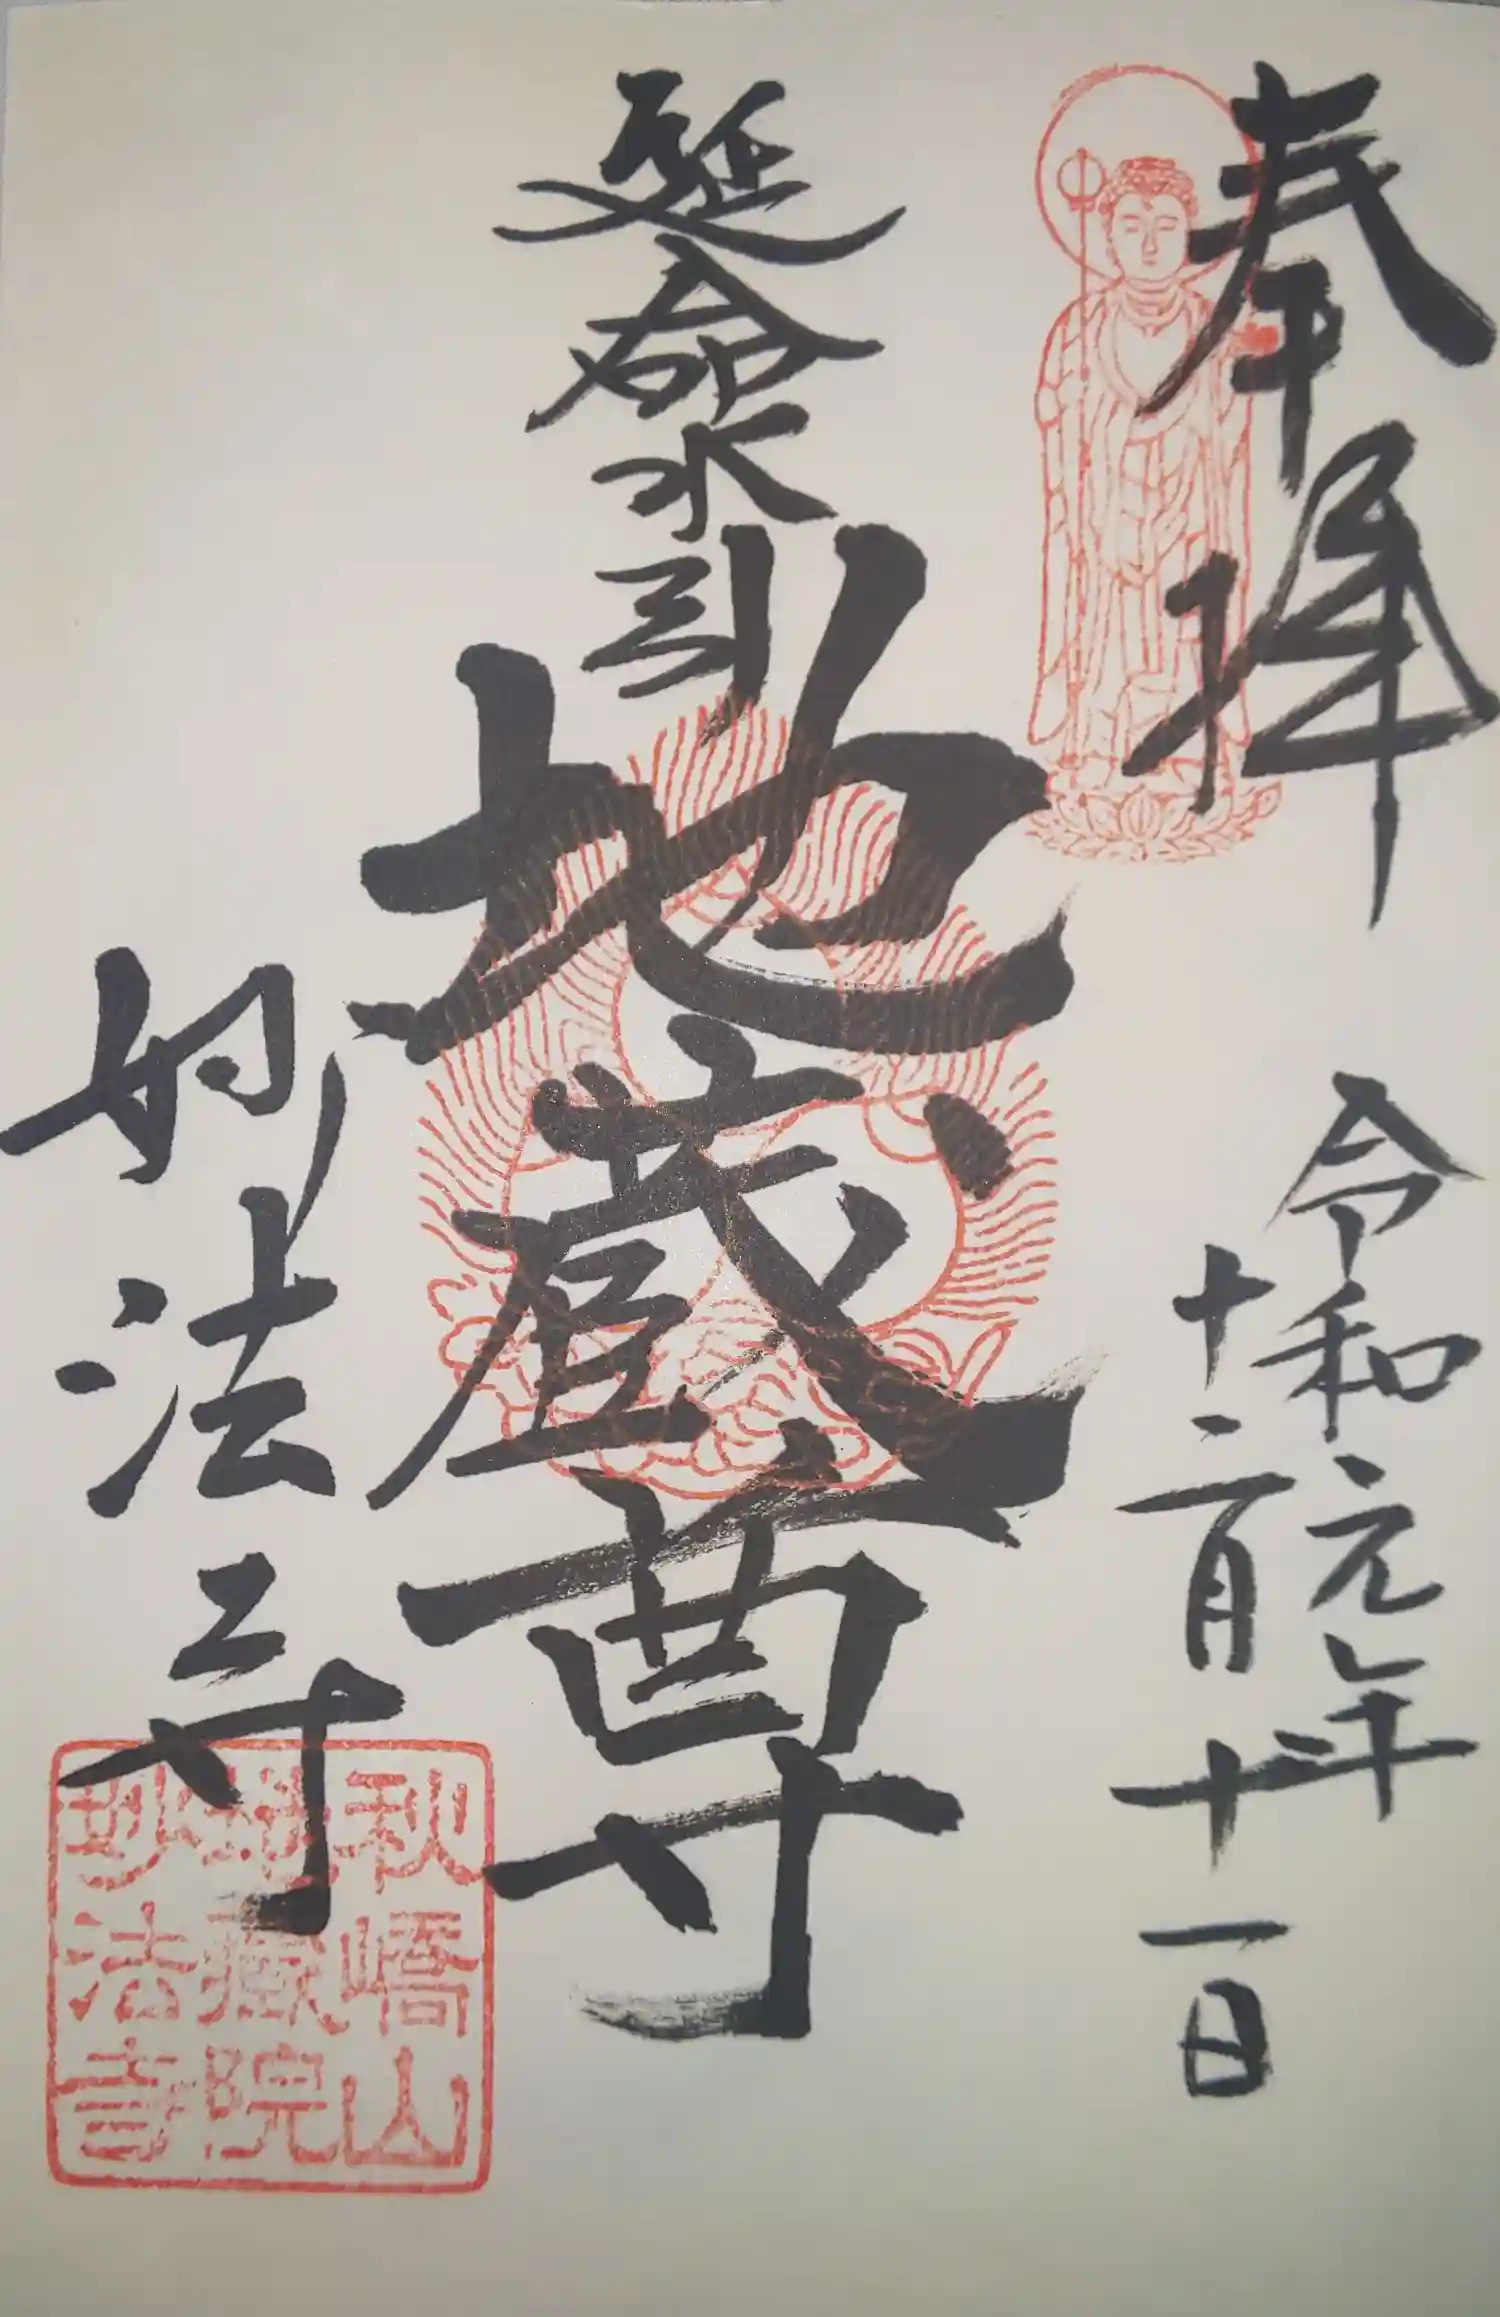 奉拝
令和元年
十二月十一日
延命水引
地蔵尊
妙法寺
秋嶹山
地蔵院
妙法寺